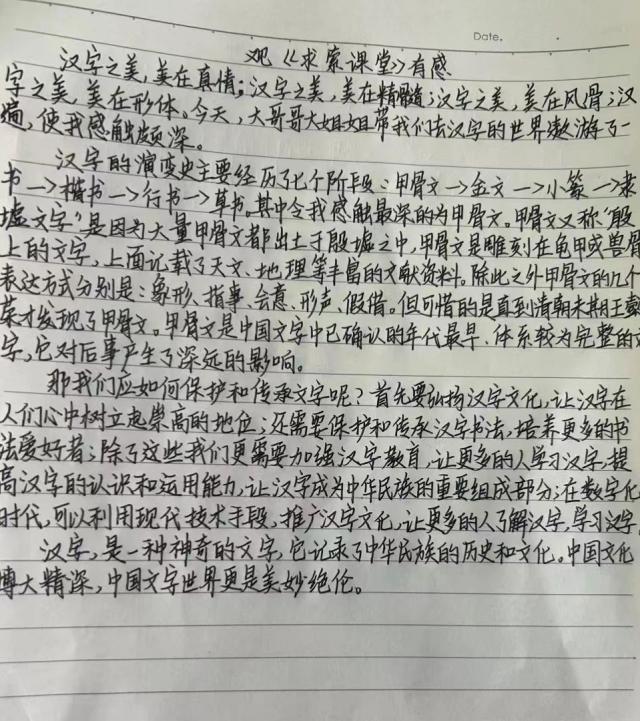 Date.
观《求索课堂》有感
汉字之美,美在真情;汉字之美,美在精髓;汉字之美,美在风骨;汉
字之美,美在形体。今天,大哥哥大姐姐带我们去汉字的世界遨游了一
遍,使我感触颇深。
汉字的演变史主要经历了七个阶段:甲骨文→金文→小篆→隶
书→楷书→行书→草书。其中令我感触最深的为甲骨文。甲骨文又称"殷
墟文字"是因为大量甲骨文都出土于殷墟之中,甲骨文是雕刻在龟甲或兽骨
上的文字,上面记载了天文、地理等丰富的文献资料。除此之外甲骨文的几个
表达方式分别是:象形、指事、会意、形声、假借。但可惜的是直到清朝末期王懿
荣才发现了甲骨文。甲骨文是中国文字中已确认的年代最早、体系较为完整的文
字,它对后事产生了深远的影响。
那我们应如何保护和传承文字呢?首先要弘扬汉字文化,让汉字在
人们心中树立起崇高的地位;还需要保护和传承汉字书法,培养更多的书
法爱好者;除了这些我们更需要加强汉字教育,让更多的人学习汉字,提
高汉字的认识和运用能力,让汉字成为中华民族的重要组成部分;在数字化
时代,可以利用现代技术手段,推广汉字文化,让更多的人了解汉字,学习汉字。
汉字,是一种神奇的文字,它记录了中华民族的历史和文化。中国文化
博大精深,中国文字世界更是美妙绝伦。